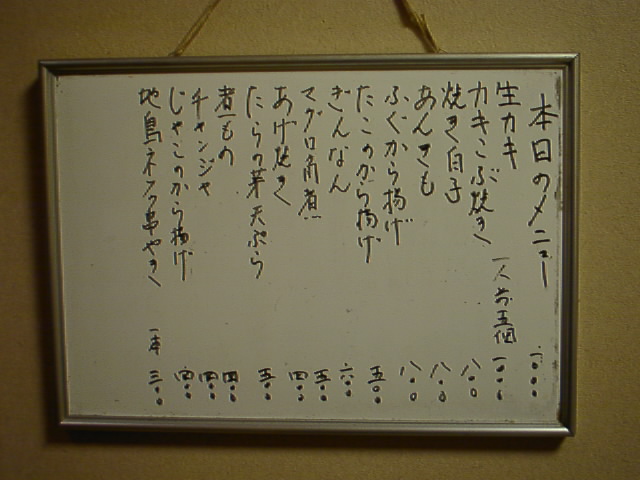 本日のメニュー
生カキ 一人前五個 一〇〇〇
カキこぶ焼き 一〇〇〇
焼き白子 八〇〇
あんきも 八〇〇
ふぐから揚げ 八〇〇
たこのから揚げ 五〇〇
ぎんなん 六〇〇
マグロ角煮 五〇〇
あげ焼き 四〇〇
たらの芽天ぷら 五〇〇
煮もの 四〇〇
チャンジャ 四〇〇
じゃこのから揚げ 四〇〇
地鳥ネック串やき 一本 三〇〇